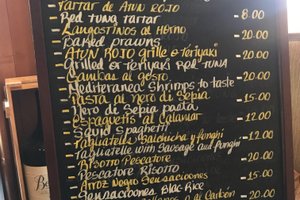 Tartar de ATUN ROJO
Red tuna tartar 8.00
Langostinos al Horno
Baked prawns 20.00
ATUN ROJO grille o Teriyaki
Grilled or teriyaki Red TUNA 20.00
Gambas al gosto
Mediterranea Shrimps to taste 20.00
Pasta al neri di Sepia
Nero di Sepia pasta 15.00
Espaguetis al Calamar
Squid Spaghetti 12.00
Tagliatelle Salchicha y Funghi
Tagliatelle with Sausage and Funghi 12.00
Risotto Pescatore
Pescatore Risotto 20.00
Arroz Negro Sensaciones
Sensaciones Blac Rice 15.00
al Carbón 20.00